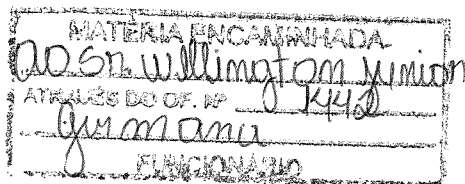 MATÉRIA ENCAMINHADA
ao Sr. Wellington Junior
ATRAVÉS DO OF. Nº 1442
Girmana
FUNCIONÁRIO